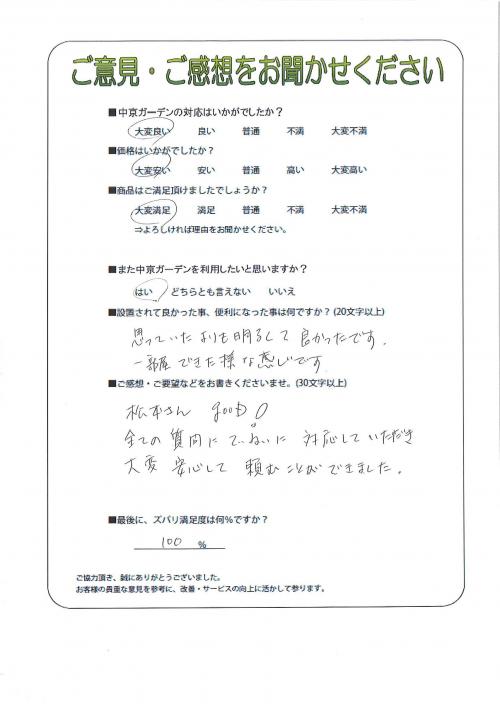 ご意見・ご感想をお聞かせください
■中京ガーデンの対応はいかがでしたか？
大変良い 良い 普通 不満 大変不満
■価格はいかがでしたか？
大変安い 安い 普通 高い 大変高い
■商品はご満足頂けましたでしょうか？
大変満足 満足 普通 不満 大変不満
⇒よろしければ理由をお聞かせください。
■また中京ガーデンを利用したいと思いますか？
はい どちらとも言えない いいえ
■設置されて良かった事、便利になった事は何ですか？(20文字以上)
思っていたよりも明るくて良かったです。
一部屋できた様な感じです
■ご感想・ご要望などをお書きくださいませ。(30文字以上)
松本さん good!
全ての質問にていねいに対応していただき
大変安心して頼むことができました。
■最後に、ズバリ満足度は何％ですか？
100 %
ご協力頂き、誠にありがとうございました。
お客様の貴重な意見を参考に、改善・サービスの向上に活かして参ります。